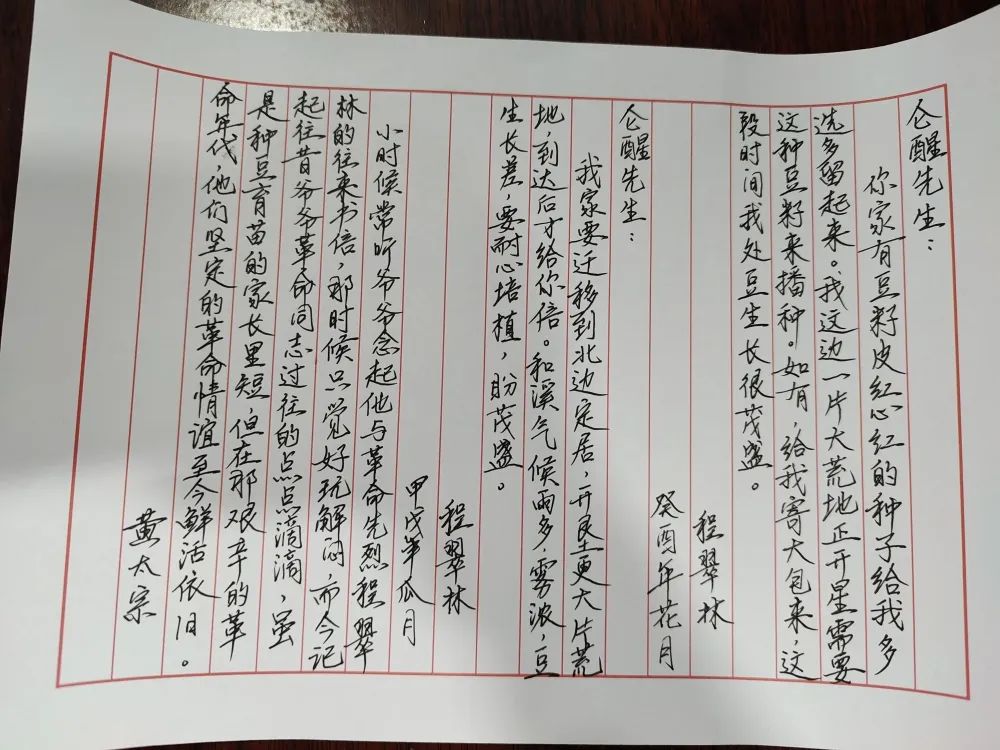 仑醒先生：
你家有豆籽皮红心红的种子给我多
选多留起来。我这边一片大荒地正开星需要
这种豆籽来播种。如有，给我寄大包来，这
段时间我处豆生长很茂盛。
程翠林
癸酉年花月
仑醒先生：
我家要迁移到北边定居，开艮更大片荒
地，到达后才给你信。和溪气候雨多，雾浓，豆
生长差，要耐心培植，盼茂盛。
程翠林
甲戊年瓜月
小时候常听爷爷念起他与革命先烈程翠
林的往来书信，那时候只觉好玩解闷，而今记
起往昔爷爷革命同志过往的点点滴滴，虽
是种豆育苗的家长里短，但在那艰辛的革
命年代，他们坚定的革命情谊至今鲜活依旧。
黄大宗